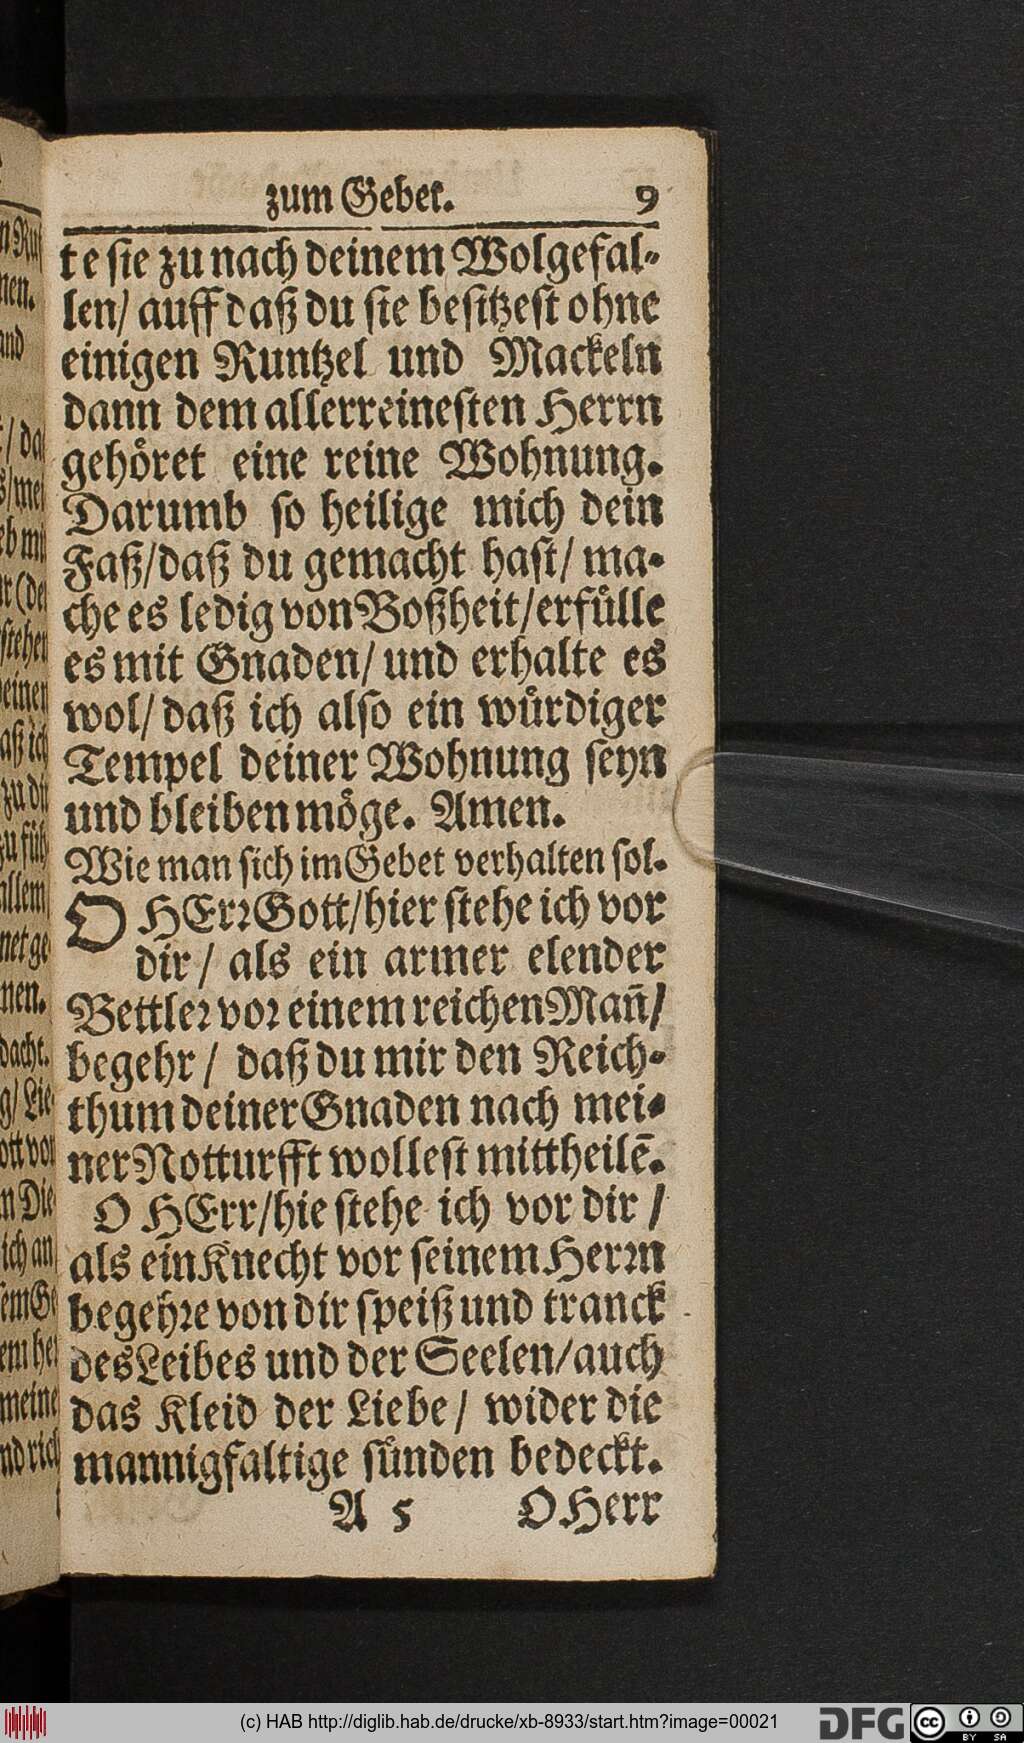 zum Gebet. 9
te sie zu nach deinem Wolgefal-
len/ auff daß du sie besitzest ohne
einigen Runtzel und Mackeln
dann dem allerreinesten Herrn
gehöret eine reine Wohnung.
Darumb so heilige mich dein
Faß/daß du gemacht hast/ ma-
che es ledig von Boßheit/erfülle
es mit Gnaden/ und erhalte es
wol/ daß ich also ein würdiger
Tempel deiner Wohnung seyn
und bleiben möge. Amen.
Wie man sich im Gebet verhalten sol.
O HErr Gott/hier stehe ich vor
dir/ als ein armer elender
Bettler vor einem reichen Mañ/
begehr/ daß du mir den Reich-
thum deiner Gnaden nach mei-
ner Notturfft wollest mittheilē.
O HErr/hie stehe ich vor dir/
als ein Knecht vor seinem Herrn
begehre von dir speiß und tranck
des Leibes und der Seelen/auch
das Kleid der Liebe/ wider die
mannigfaltige sünden bedeckt.
A 5 O Herr
(c) HAB http://diglib.hab.de/drucke/xb-8933/start.htm?image=00021
DFG
cc BY SA